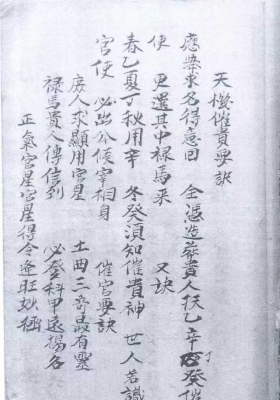 天機催貴要訣
應案求名得意回　全憑造葬貴人扶乙辛丁癸催
使　更還其中祿馬來　又訣
春乙夏丁秋用辛　冬癸須知催貴神　世人若識
官使　必出公侯宰相身　催官要訣
庶人求顯用官星　土酉三奇最有靈
祿馬貴人傳信到　必登科甲遠揚名
正氣官星官星得令逢旺妙極